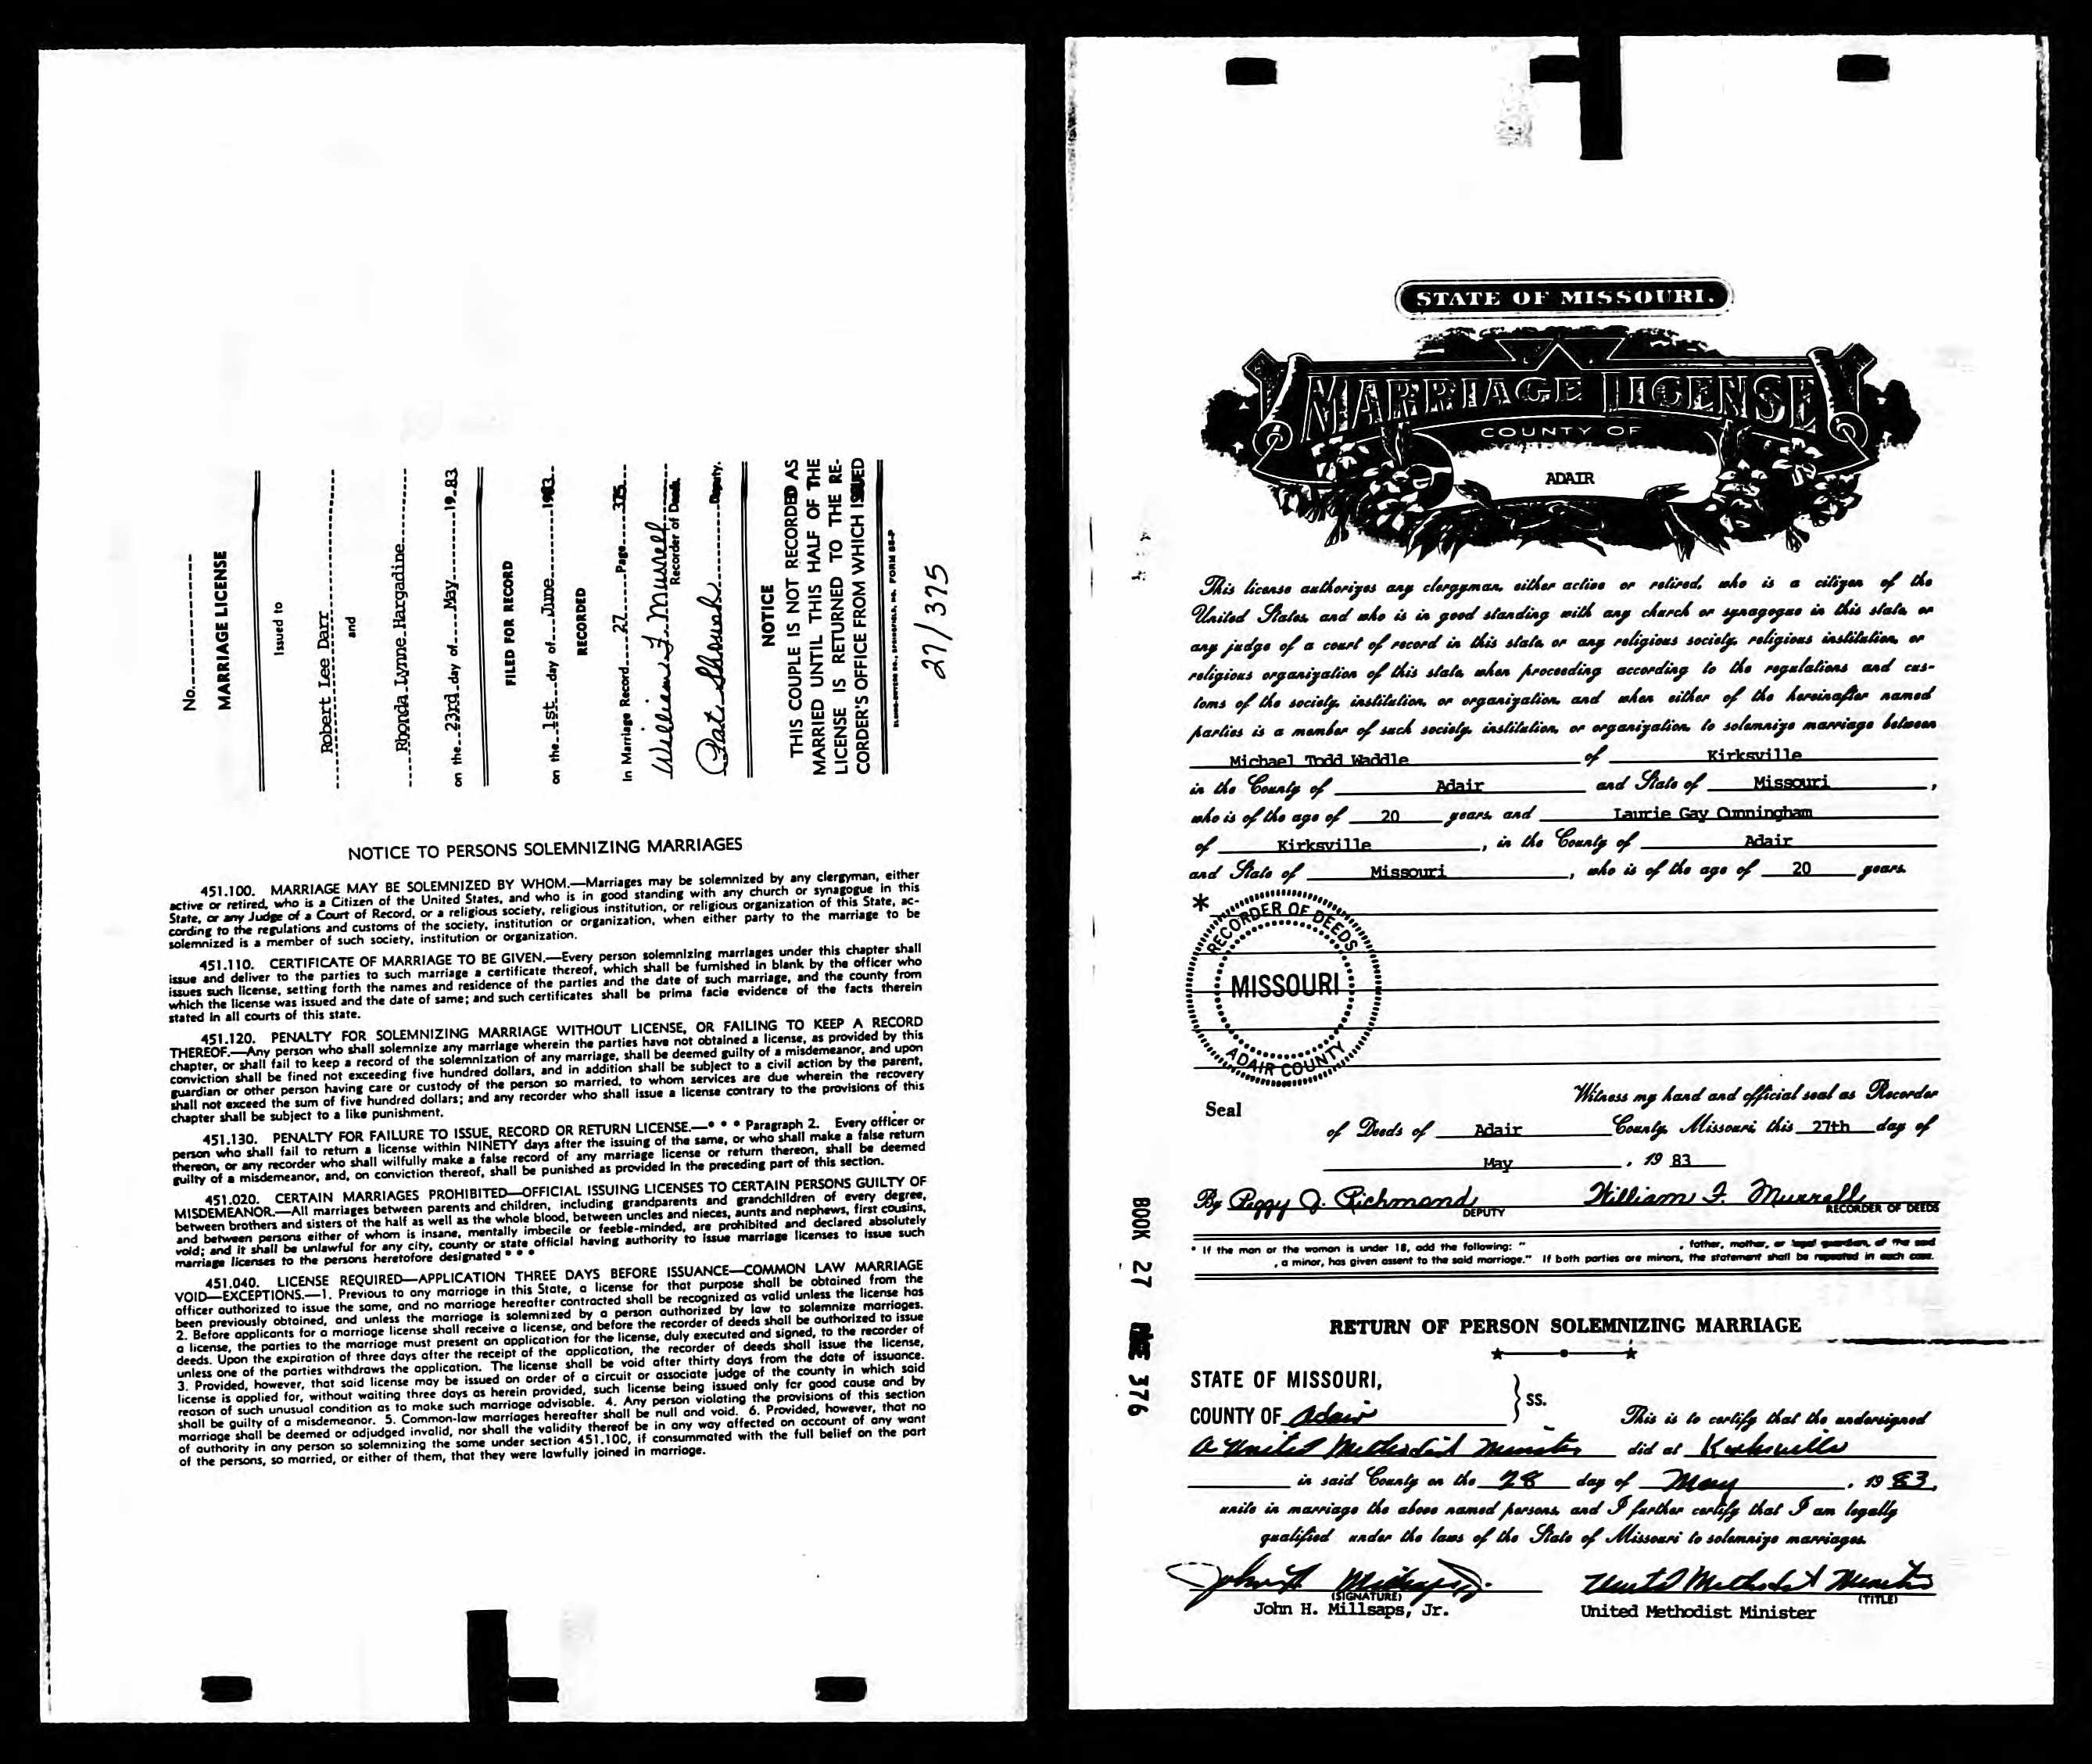 No.
MARRIAGE LICENSE
Issued to
Robert Lee Darr
and
Rhonda Lynne Hargadine
on the 23rd day of May 19 83
FILED FOR RECORD
on the 1st day of June 1983
RECORDED
In Marriage Record 27 Page 375
William F. Murrell
Recorder of Deeds.
Pat Shouah Deputy.
NOTICE
THIS COUPLE IS NOT RECORDED AS
MARRIED UNTIL THIS HALF OF THE
LICENSE IS RETURNED TO THE RE-
CORDER'S OFFICE FROM WHICH ISSUED
FORM 88-P
27/375
NOTICE TO PERSONS SOLEMNIZING MARRIAGES
451.100. MARRIAGE MAY BE SOLEMNIZED BY WHOM.—Marriages may be solemnized by any clergyman, either
active or retired, who is a Citizen of the United States, and who is in good standing with any church or synagogue in this
State, or any Judge of a Court of Record, or a religious society, religious institution, or religious organization of this State, ac-
cording to the regulations and customs of the society, institution or organization, when either party to the marriage to be
solemnized is a member of such society, institution or organization.
451.110. CERTIFICATE OF MARRIAGE TO BE GIVEN.—Every person solemnizing marriages under this chapter shall
issue and deliver to the parties to such marriage a certificate thereof, which shall be furnished in blank by the officer who
issues such license, setting forth the names and residence of the parties and the date of such marriage, and the county from
which the license was issued and the date of same; and such certificates shall be prima facie evidence of the facts therein
stated in all courts of this state.
451.120. PENALTY FOR SOLEMNIZING MARRIAGE WITHOUT LICENSE, OR FAILING TO KEEP A RECORD
THEREOF.—Any person who shall solemnize any marriage wherein the parties have not obtained a license, as provided by this
chapter, or shall fail to keep a record of the solemnization of any marriage, shall be deemed guilty of a misdemeanor, and upon
conviction shall be fined not exceeding five hundred dollars, and in addition shall be subject to a civil action by the parent,
guardian or other person having care or custody of the person so married, to whom services are due wherein the recovery
shall not exceed the sum of five hundred dollars; and any recorder who shall issue a license contrary to the provisions of this
chapter shall be subject to a like punishment.
451.130. PENALTY FOR FAILURE TO ISSUE, RECORD OR RETURN LICENSE.—* * * Paragraph 2. Every officer or
person who shall fail to return a license within NINETY days after the issuing of the same, or who shall make a false return
thereon, or any recorder who shall wilfully make a false record of any marriage license or return thereon, shall be deemed
guilty of a misdemeanor, and, on conviction thereof, shall be punished as provided in the preceding part of this section.
451.020. CERTAIN MARRIAGES PROHIBITED—OFFICIAL ISSUING LICENSES TO CERTAIN PERSONS GUILTY OF
MISDEMEANOR.—All marriages between parents and children, including grandparents and grandchildren of every degree,
between brothers and sisters of the half as well as the whole blood, between uncles and nieces, aunts and nephews, first cousins,
and between persons either of whom is insane, mentally imbecile or feeble-minded, are prohibited and declared absolutely
void; and it shall be unlawful for any city, county or state official having authority to issue marriage licenses to issue such
marriage licenses to the persons heretofore designated * * *
451.040. LICENSE REQUIRED—APPLICATION THREE DAYS BEFORE ISSUANCE—COMMON LAW MARRIAGE
VOID—EXCEPTIONS.—1. Previous to any marriage in this State, a license for that purpose shall be obtained from the
officer authorized to issue the same, and no marriage hereafter contracted shall be recognized as valid unless the license has
been previously obtained, and unless the marriage is solemnized by a person authorized by law to solemnize marriages.
2. Before applicants for a marriage license shall receive a license, and before the recorder of deeds shall be authorized to issue
a license, the parties to the marriage must present an application for the license, duly executed and signed, to the recorder of
deeds. Upon the expiration of three days after the receipt of the application, the recorder of deeds shall issue the license,
unless one of the parties withdraws the application. The license shall be void after thirty days from the date of issuance.
3. Provided, however, that said license may be issued on order of a circuit or associate judge of the county in which said
license is applied for, without waiting three days as herein provided, such license being issued only for good cause and by
reason of such unusual condition as to make such marriage advisable. 4. Any person violating the provisions of this section
shall be guilty of a misdemeanor. 5. Common-law marriages hereafter shall be null and void. 6. Provided, however, that no
marriage shall be deemed or adjudged invalid, nor shall the validity thereof be in any way affected on account of any want
of authority in any person so solemnizing the same under section 451.100, if consummated with the full belief on the part
of the persons, so married, or either of them, that they were lawfully joined in marriage.
STATE OF MISSOURI.
MARRIAGE LICENSE
COUNTY OF
ADAIR
This license authorizes any clergyman, either active or retired, who is a citizen of the
United States, and who is in good standing with any church or synagogue in this state, or
any judge of a court of record in this state, or any religious society, religious institution, or
religious organization of this state, when proceeding according to the regulations and cus-
toms of the society, institution, or organization, and when either of the hereinafter named
parties is a member of such society, institution, or organization, to solemnize marriage between
Michael Todd Waddle of Kirksville
in the County of Adair and State of Missouri ,
who is of the age of 20 years, and Laurie Gay Cunningham
of Kirksville , in the County of Adair
and State of Missouri , who is of the age of 20 years.
*
RECORDER OF DEEDS
MISSOURI
ADAIR COUNTY
Witness my hand and official seal as Recorder
Seal
of Deeds of Adair County, Missouri, this 27th day of
May , 19 83
By Peggy J. Richmond DEPUTY William F. Murrell RECORDER OF DEEDS
* If the man or the woman is under 18, add the following: " , father, mother, or legal guardian, of the said
, a minor, has given assent to the said marriage." If both parties are minors, the statement shall be repeated in each case.
BOOK 27 PAGE 376
RETURN OF PERSON SOLEMNIZING MARRIAGE
STATE OF MISSOURI,
COUNTY OF Adair } ss.
This is to certify that the undersigned
a United Methodist Minister did at Kirksville
in said County on the 28 day of May , 19 83,
unite in marriage the above named persons, and I further certify that I am legally
qualified under the laws of the State of Missouri to solemnize marriages.
John H. Millsaps, Jr. United Methodist Minister
(SIGNATURE) (TITLE)
John H. Millsaps, Jr. United Methodist Minister